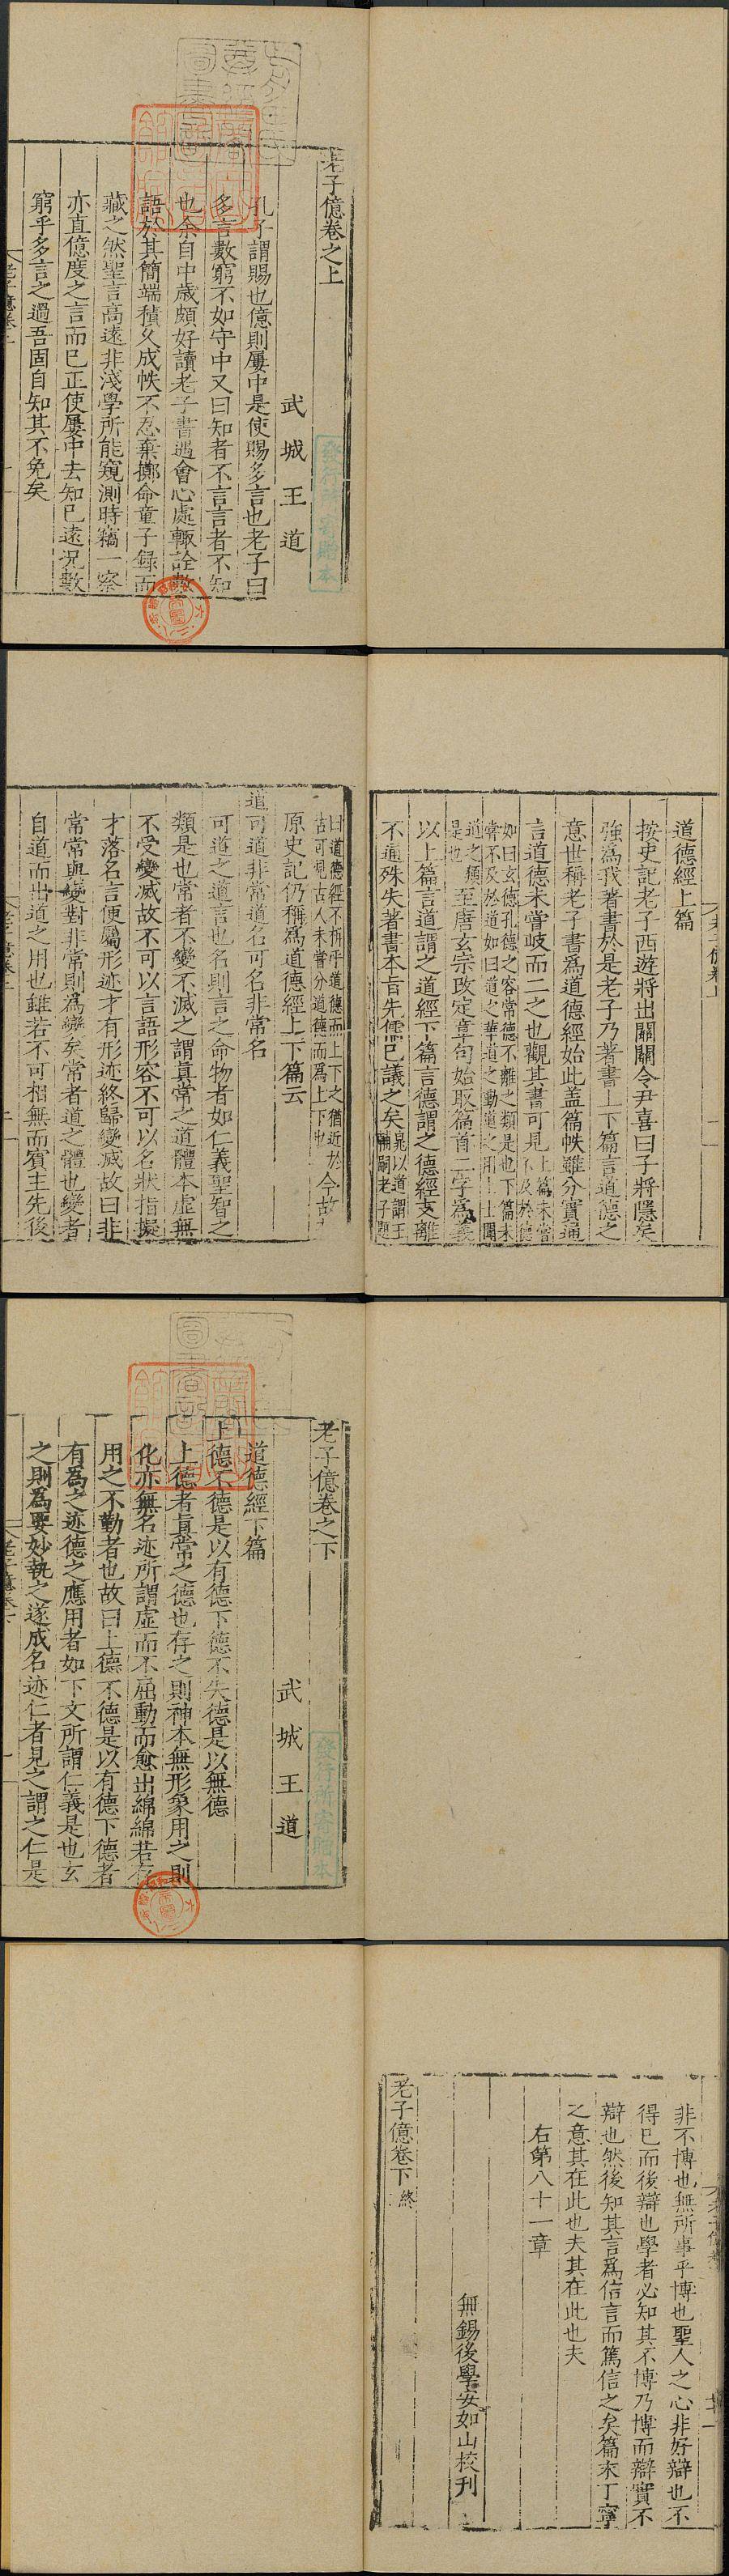 老子億卷之上
武城王道
孔子謂賜也億則屢中是使賜多言也老子曰
多言數窮不如守中又曰知者不言言者不知
也余自中歲頗好讀老子書遇會心處輒詮數
語於其簡端積久成帙不忍棄擲命童子録而
藏之然聖言高遠非淺學所能窺測時竊一察
亦直億度之言而已正使屢中去知已遠況數
窮乎多言之過吾固自知其不免矣
發行所寄贈本
道德經上篇
按史記老子西遊將出關關令尹喜曰子將隱矣
強爲我著書於是老子乃著書上下篇言道德之
意世稱老子書爲道德經始此盖篇帙雖分實通
言道德未嘗岐而二之也觀其書可見上篇未嘗
不及於德
如曰玄德孔德之容常德不離之類是也下篇未
嘗不及於道如曰道之華道之動道之用上士聞
道之類
是也至唐玄宗改定章句始取篇首二字爲義
以上篇言道謂之道經下篇言德謂之德經支離
不通殊失著書本旨先儒已議之矣晁以道謂王
輔嗣老子題
曰道德經不析乎道德而上下之猶近於今故
古可見古人未嘗分道德而爲上下也
原史記仍稱爲道德經上下篇云
道可道非常道名可名非常名
可道之道言也名則言之命物者如仁義聖智之
類是也常者不變不滅之謂眞常之道體本虛無
不受變滅故不可以言語形容不可以名狀指擬
才落名言便屬形迹才有形迹終歸變滅故曰非
常常與變對非常則爲變矣常者道之體也變者
自道而出道之用也雖若不可相無而賓主先後
老子億卷之下
武城王道
道德經下篇
上德不德是以有德下德不失德是以無德
上德者眞常之德也存之則神本無形象用之則
化亦無名迹所謂虛而不屈動而愈出綿綿若存
用之不勤者也故曰上德不德是以有德下德者
有爲之迹德之應用者如下文所謂仁義是也玄
之則爲要妙執之遂成名迹仁者見之謂之仁是
發行所寄贈本
非不博也無所事乎博也聖人之心非好辯也不
得已而後辯也學者必知其不博乃博而辯實不
辯也然後知其言爲信言而篤信之矣篇末丁寧
之意其在此也夫其在此也夫
右第八十一章
無錫後學安如山校刊
老子億卷下終